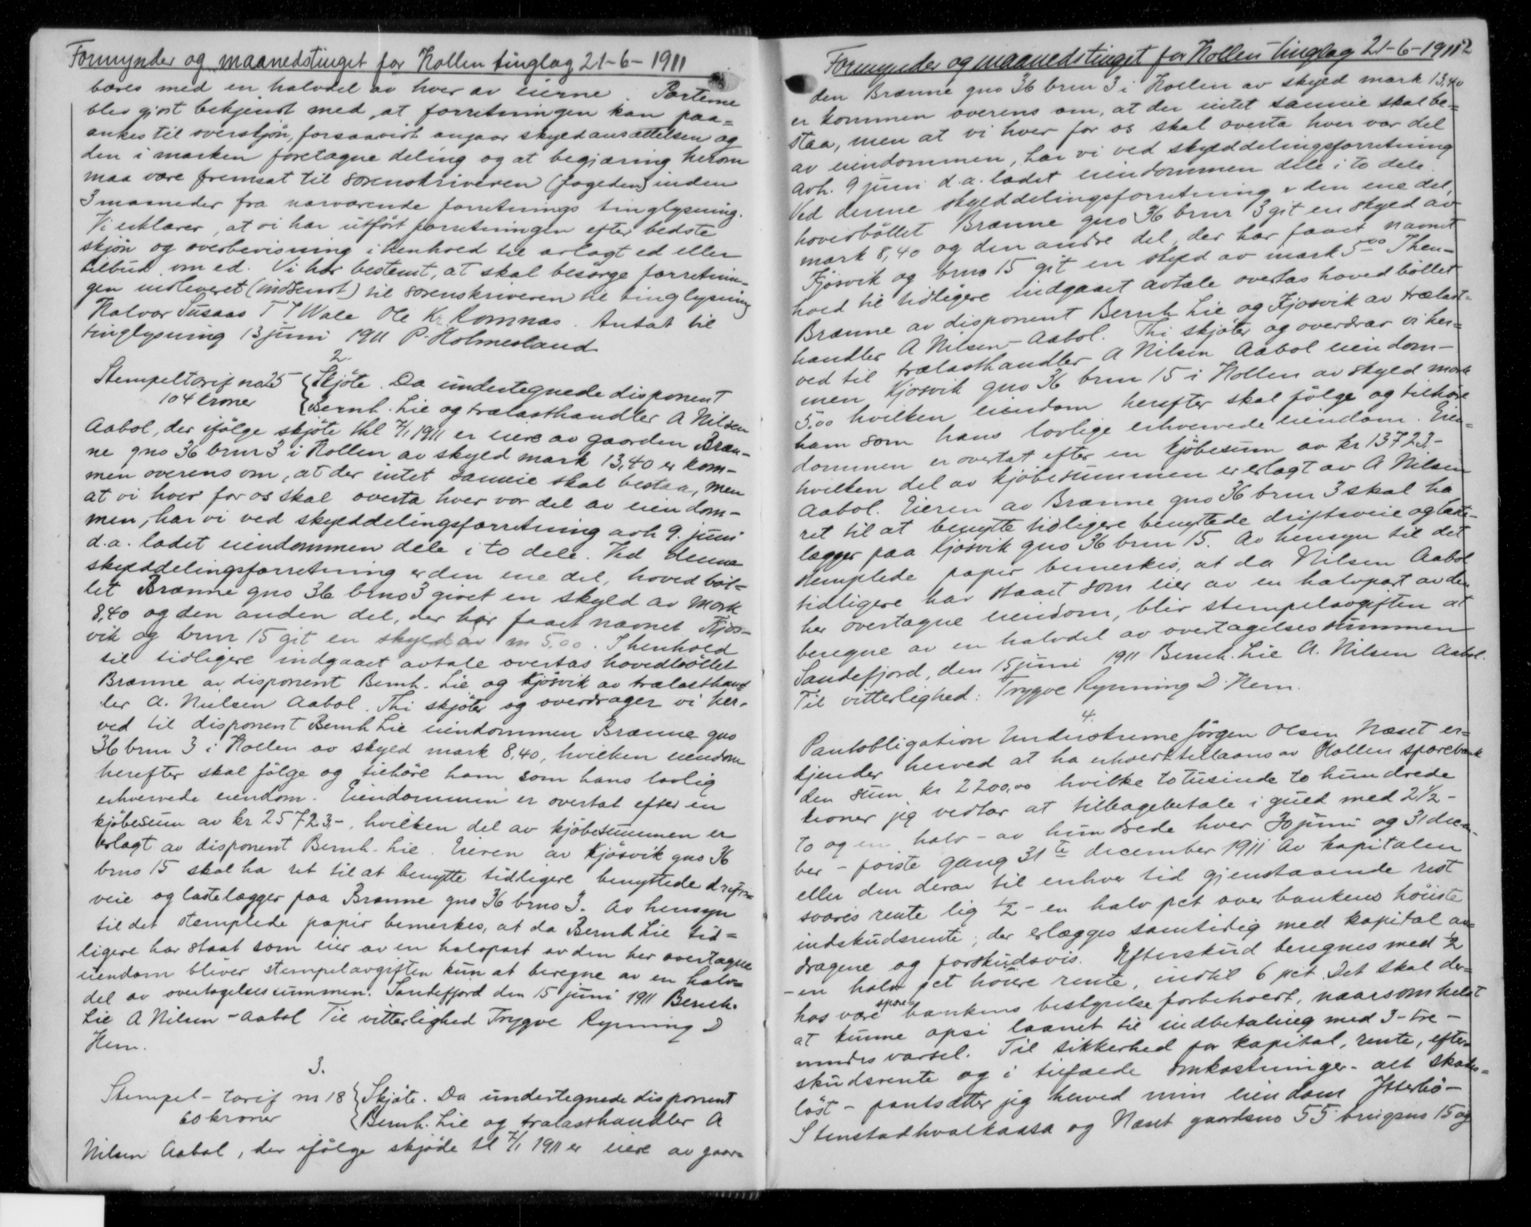 Formynder og maanedstinget for Hollen tinglag 21-6-1911
bæres med en halvdel av hver av eierne. Parterne
blev gjort bekjendt med, at forretningen kan paa=
ankes til overskjøn, forsaavidt angaar skyldansættelsen og
den i marken foretagne deling og at begjæring herom
maa være fremsat til sorenskriveren (fogeden) inden
3 maaneder fra nærværende forretnings tinglysning.
Vi erklærer, at vi har utført forretningen efter bedste
skjøn og overbevisning i henhold til avlagt ed eller
tilbud om ed. Vi har bestemt, at skal besørge forretnin-
gen indleveret (indsendt) til sorenskriveren til tinglysning
Halvor Susaas T T Wale Ole Kr. Romnæs. Antat til
tinglysning 13 juni 1911 P. Holmesland
2
Stempeltarif no 25 { Skjøte. Da undertegnede disponent
104 kroner { Bernh. Lie og trælasthandler A Nilsen
Aabol, der ifølge skjøte tbl 7/1 1911 er eiere av gaarden Bræn-
ne gno 36 brnr 3 i Hollen av skyld mark 13,40 er kom-
men overens om, at der intet sameie skal bestaa, men
at vi hver for os skal overta hver vor del av eiendom-
men, har vi ved skylddelingsforretning avh. 9. juni
d.a. ladet eiendommen dele i to dele. Ved denne
skylddelingsforretning er den ene del, hovedböl=
let Brænne gno 36 brno 3 givet en skyld av mark
8,40 og den anden del, der har faaet navnet Kjøs-
vik og brnr 15 git en skyld av m 5,00. I henhold
til tidligere indgaaet avtale overtas hovedbøllet
Brænne av disponent Bernh. Lie og Kjøsvik av trælasthand
ler A. Nielsen Aabol. Thi skjøter og overdrager vi her-
ved til disponent Bernh Lie eiendommen Brænne gno
36 brnr 3 i Hollen av skyld mark 8,40, hvilken eiendom
herefter skal følge og tilhøre ham som hans lovlig
erhvervede eiendom. Eiendommen er overtat efter en
kjøbesum av kr 25723,-, hvilken del av kjøbesummen er
erlagt av disponent Bernh. Lie. Eieren av Kjøsvik gno 36
brno 15 skal ha ret til at benytte tidligere benyttede drifts-
veie og lastelægger paa Brænne gno 36 brno 3. Av hensyn
til det stemplede papir bemerkes, at da Bernh Lie tid=
ligere har staat som eier av en halvpart av den her overtagne
eiendom bliver stempelavgiften kun at beregne av en halv=
del av overtagelsessummen. Sandefjord den 15 juni 1911 Bernh.
Lie A Nilsen - Aabol Til vitterlighed Trygve Rynning D
Hem.
3.
Stempel-tarif nr 18 { Skjøte. Da undertegnede disponent
60 kroner { Bernh. Lie og trælasthandler A
Nilsen Aabol, der ifølge skjøde tl 7/1 1911 er eiere av gaar=
Formynder og maanedstinget for Hollen tinglag 21-6-1911 2
den Brænne gno 36 brnr 3 i Hollen av skyld mark 13,40
er kommen overens om, at der intet sameie skal be=
staa, men at vi hver for os skal overta hver vor del
av eiendommen, har vi ved skylddelingsforretning
avh. 9 juni d.a. ladet eiendommen dele i to dele.
Ved denne skylddelingsforretning er den ene del,
hovedbøllet Brænne gno 36 brnr 3 git en skyld av
mark 8,40 og den andre del, der har faaet navnet
Kjøsvik og brno 15 git en skyld av mark 5,00 I hen-
hold til tidligere indgaaet avtale overtas hovedbøllet
Brænne av disponent Bernh. Lie og Kjøsvik av trælast-
handler A Nilsen - Aabol. Thi skjøter og overdrar vi her=
ved til trælasthandler A Nilsen Aabol eiendom-
men Kjøsvik gno 36 brnr 15 i Hollen av skyld mark
5,00 hvilken eiendom herefter skal følge og tilhøre
ham som hans lovlige erhvervede eiendom. Eien-
dommen er overtat efter en kjøbesum av kr 13723,-
hvilken del av kjøbesummen er erlagt av A Nilsen
Aabol. Eieren av Brænne gno 36 brnr 3 skal ha
ret til at benytte tidligere benyttede driftsveie og laste-
lægger paa Kjøsvik gno 36 brnr 15. Av hensyn til det
stemplede papir bemerkes, at da Nilsen Aabol
tidligere har staaet som eier av en halvpart av den
her overtagne eiendom, blir stempelavgiften at
beregne av en halvdel av overtagelsessummen
Sandefjord, den 15 juni 1911 Bernh. Lie A. Nilsen Aabol.
Til vitterlighed: Trygve Rynning D. Hem.
4.
Pantobligation Underskrevne Jörgen Olsen Næset er=
kjender herved at ha erholdt tillaans av Hollen sparebank
den sum kr 2200,00 hvilke to tusinde to hundrede
kroner jeg vedtar at tilbagebetale i gjæld med 2½ -
to og en halv - av hundrede hver 30 juni og 31 decem-
ber - første gang 31te december 1911 Av kapitalen
eller den derav til enhver tid gjenstaaende rest
svares rente lig ½ - en halv pct over bankens høieste
indskudsrente, der erlægges samtidig med kapital av=
dragene og forskudsvis. Efterskud beregnes med ½
- en halv pct høiere rente, indtil 6 pct. Det skal der=
hos være sparebankens bestyrelse forbeholdt, naarsomhelst
at kunne opsi laanet til indbetaling med 3 - tre -
mndrs varsel. Til sikkerhed for kapital, rente, efter-
skudsrente og i tilfælde omkostninger - alt skades=
løst - pantsætter jeg herved min eiendom Ytterbø-
Stenstadhvalkaasa og Næset gaardsno 55 brugsno 15 og